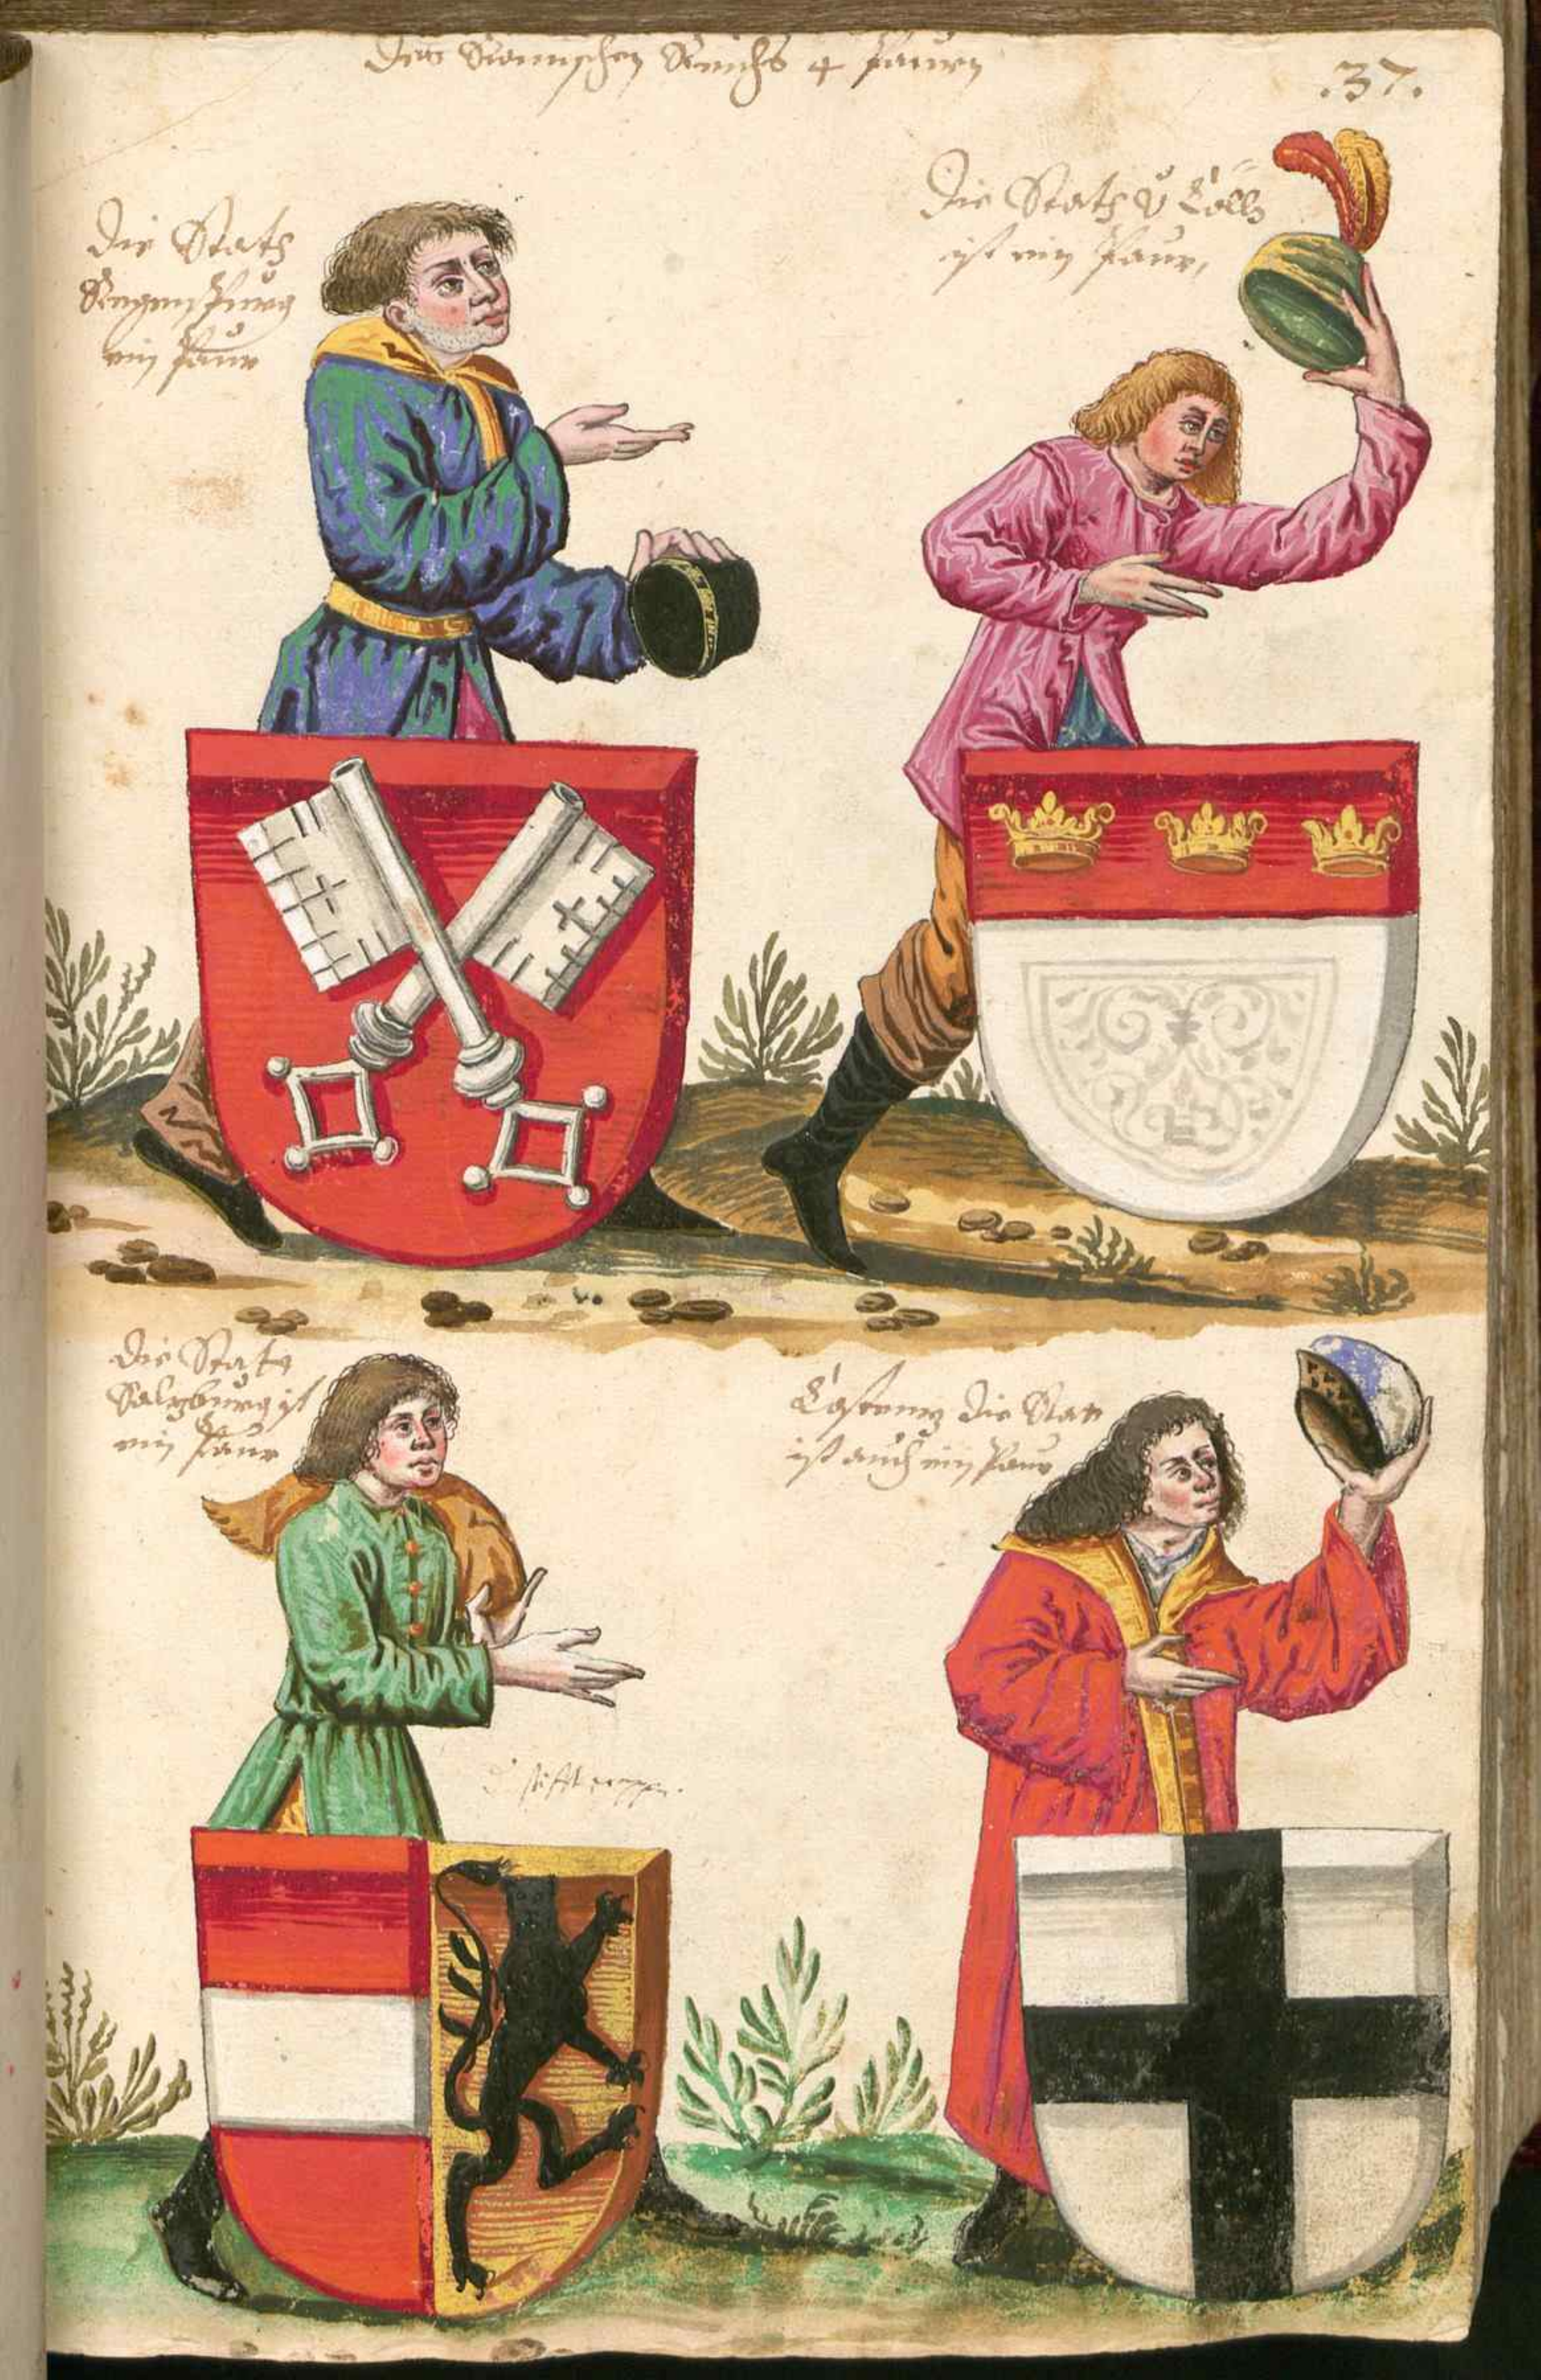 Des Römischen Reichs 4 Paurn
.37.
Die Statt
Regenspurg
ein Paur
Die Statt v Cölln
ist ein Paur,
Die Statt
Saltzburg ist
ein Paur
Costenntz die Statt
ist auch ein Paur